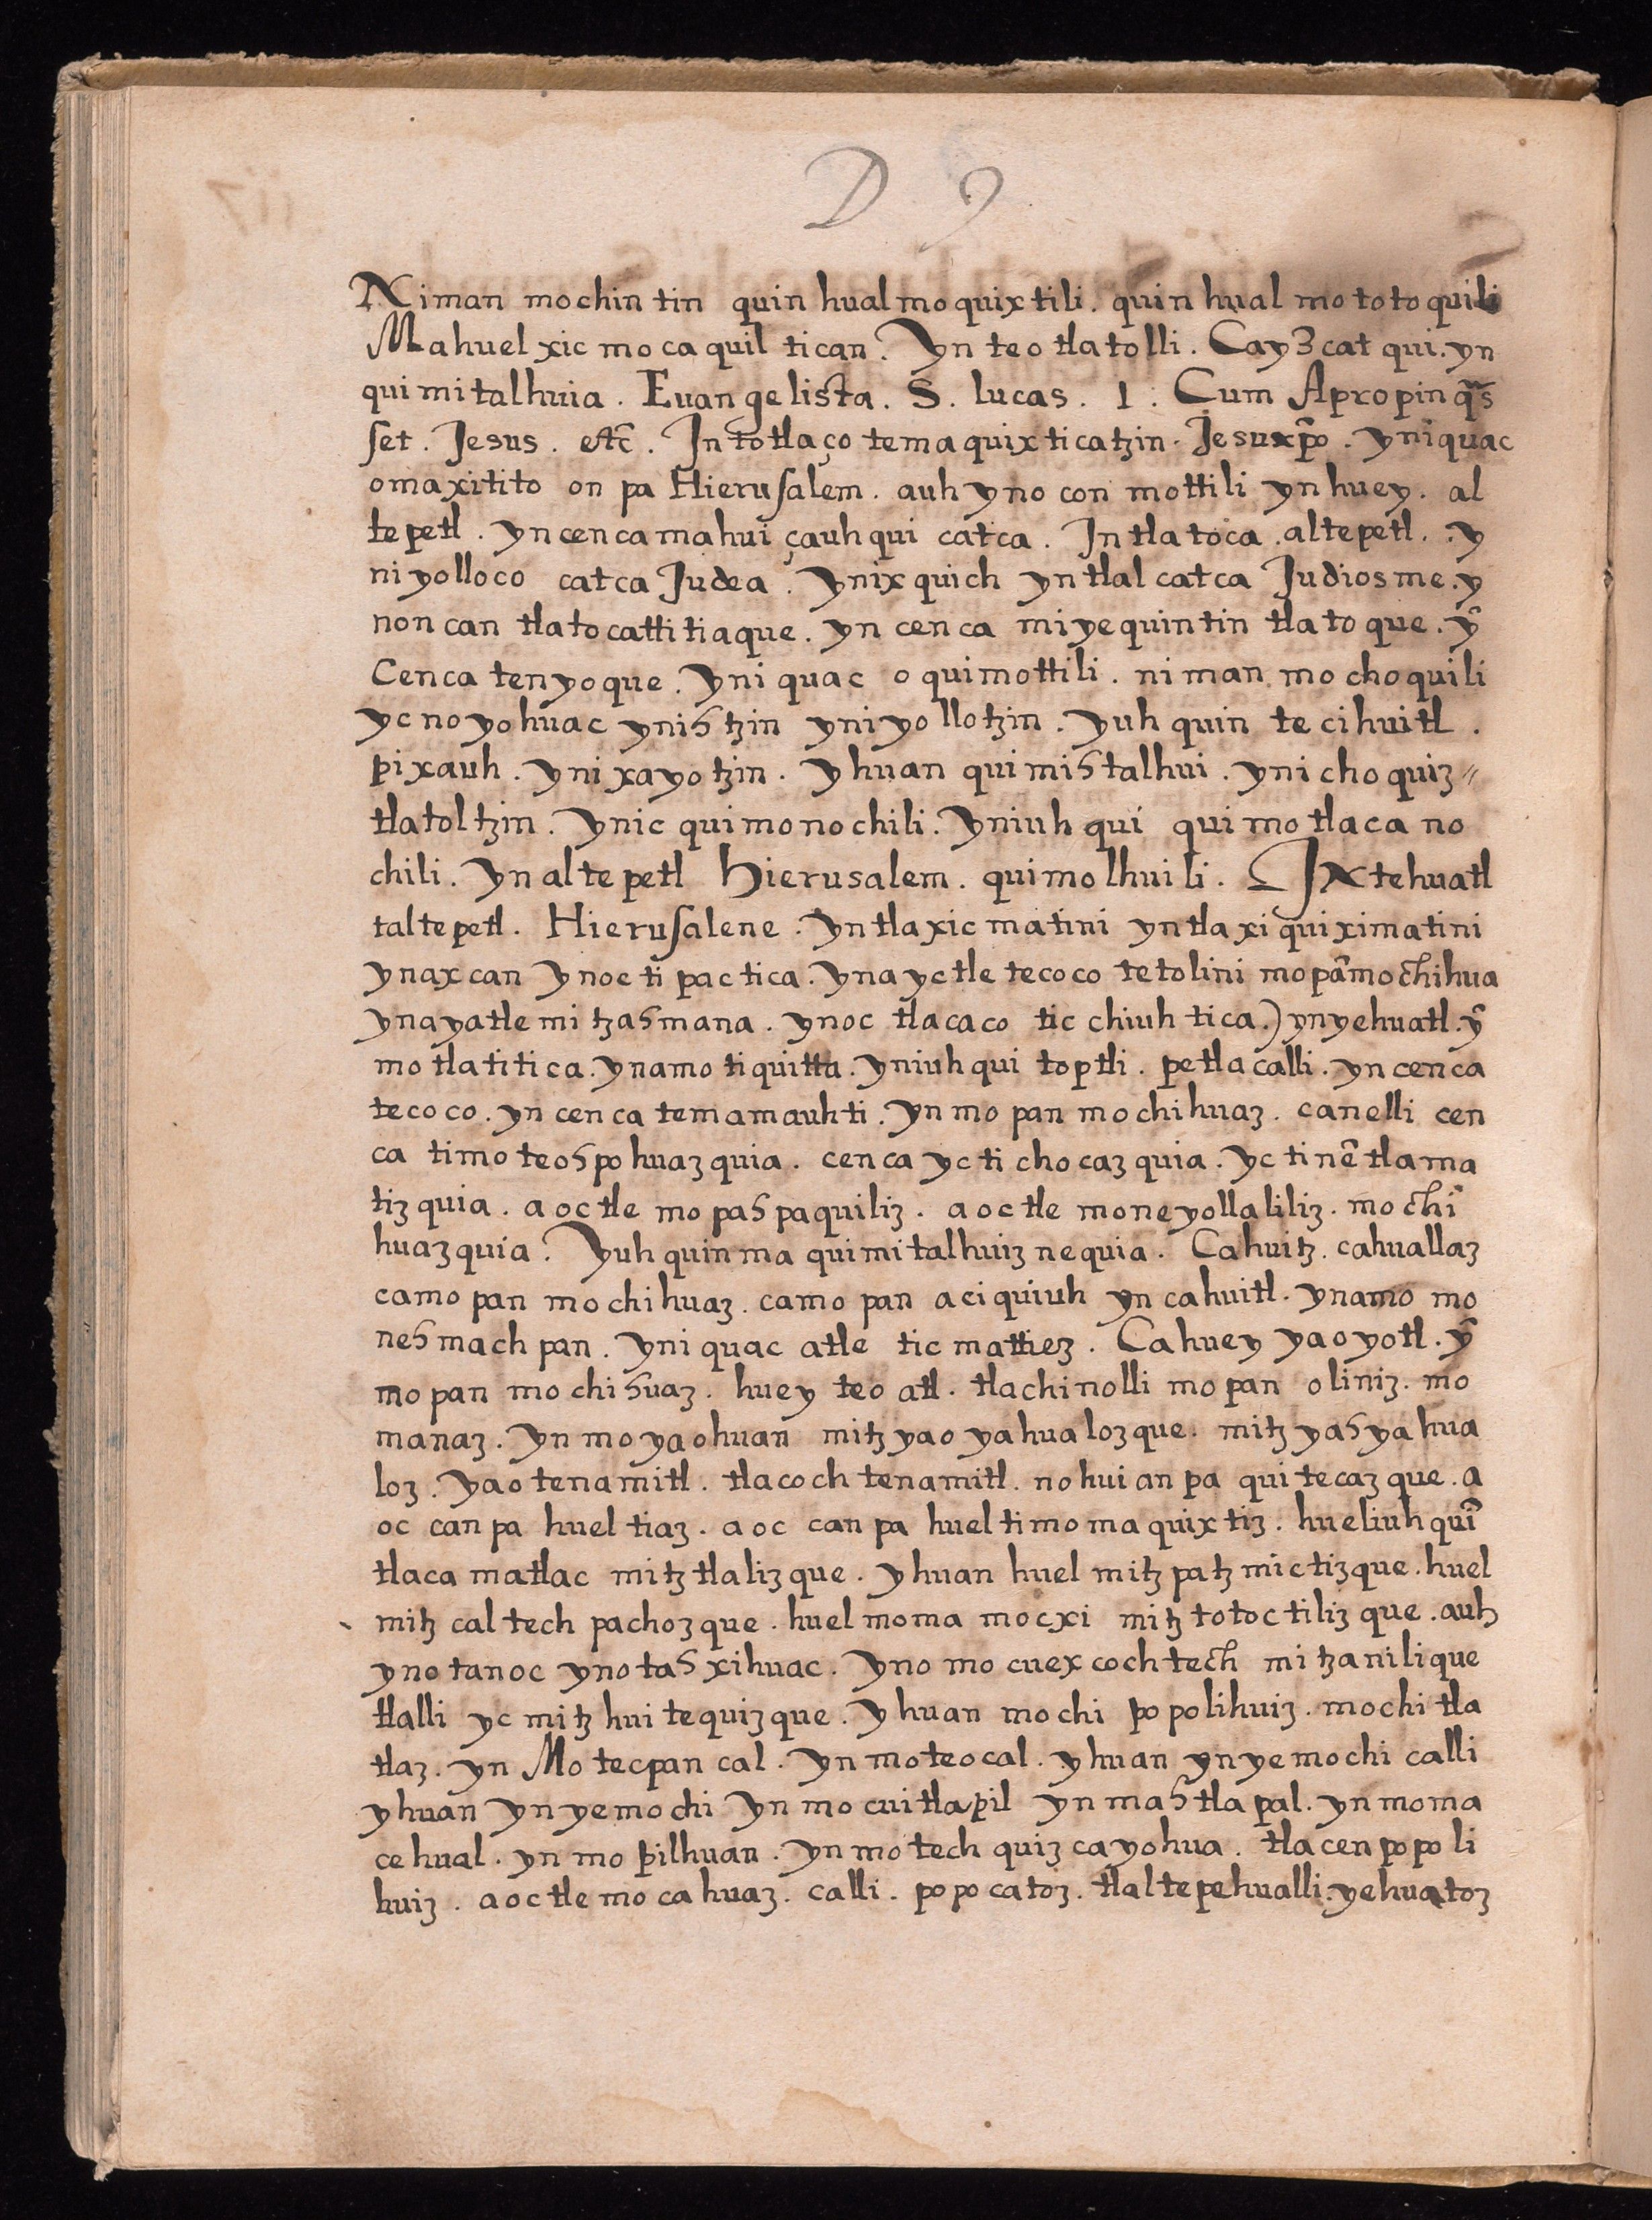 D 9
Niman mochin tin quin hual mo quix tili. quin hual mo to to quili
Mahuel xic mo ca quil ti can. Yn te o tla to lli. Cay3 cat qui. yn
qui mi talhuia. Euangelista. S. lucas. 1. Cum Apropinq̃s
set. Jesus. etc̃. In totlaço tema quix ticatzin. Jesuxp̃o. yniquac
omaxitito on pa Hierusalem. auh yno con mottili yn huey. al
te petl. yn cen ca mahui çauh qui catca. In tla toca. altepetl. y
ni yolloco catca Judea. ynix quich yn tlal catca Judios me. y
non can tla to catti tiaque. yn cen ca mi ye quin tin tla to que. ỹ
Cenca ten yo que. yni quac o quimottili. ni man mo cho quili
yc no yo huac ynishtzin yni yo llotzin. yuh quin te cihuitl.
pixauh. yni xayo tzin. y huan qui mishtalhui. yni cho quiz=
tlatol tzin. ynic qui mo nochili. yniuh qui qui mo tlaca no
chili. yn al te petl Hierusalem. qui mo lhui li. Ix tehuatl
tal te petl. Hierusalene. yn tla xic matini yn tla xi qui ximatini
yn ax can ynoc ti pac tica. yn a yc tle te co co te to lini mo pã mo chihua
yn a yatle mi tzashmana. ynoc tlacaco tic chiuh tica.) yn yehuatl. ỹ
mo tla ti ti ca. yn amo ti quitta. yniuh qui toptli. petla calli. yn cen ca
te co co. yn cen ca temamauhti. yn mo pan mo chi huaz. canelli cen
ca timo teoshpo huaz quia. cen ca yc ti cho caz quia. yc ti nẽ tla ma
tiz quia. a oc tle mo pash paquiliz. a oc tle mone yolla liliz. mo chi
huaz quia. Yuh quin ma qui mi talhuiz ne quia. Cahuitz. cahuallaz
camo pan mo chi huaz. camo pan aci quiuh yn cahuitl. ynamo mo
nesh mach pan. yni quac atle tic mattiez. Ca huey yao yotl. ỹ
mo pan mo chi huaz. huey teo atl. tlachinolli mo pan o liniz. mo
manaz. yn mo yaohuan mitz yao yahua loz que. mitz yash ya hua
loz. yao tenamitl. tlacoch tenamitl. no hui an pa qui tecaz que. a
oc can pa huel tiaz. a oc can pa huel ti mo ma quix tiz. hueliuh quĩ
tlaca matlac mitz tlaliz que. y huan huel mitz patz mic tiz que. huel
mitz cal tech pachoz que. huel moma mocxi mitz totoc tiliz que. auh
yno tanoc yno tash xihuac. yno mo cuex coch tech mi tzanilique
tlalli yc mitz hui tequiz que. y huan mo chi po polihuiz. mo chi tla
tlaz. yn Mo tecpan cal. yn moteo cal. y huan yn ye mo chi calli
y huan yn ye mo chi yn mo cuitlapil yn mash tla pal. yn moma
ce hual. yn mo pilhuan. yn mo tech quiz ca yohua. tla cen po po li
huiz. a oc tle mo ca huaz. calli. po po ca toz. tlal te pe hualli. yehuatoz